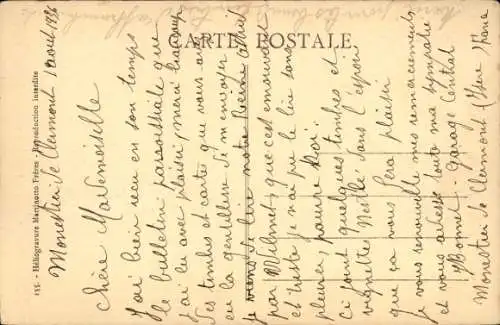 CARTE POSTALE
155. - Héliogravure Martinotto Frères - Reproduction interdite
Monestier de Clermont 1 aout 1936
Chère Mademoiselle
J'ai bien reçu en son temps
le bulletin paroissiale que
j'ai lu avec plaisir, merci beaucoup
des timbres et cartes que vous avez
eu la gentillesse de m'envoyer
je viens de lire notre Reine
par Wilmet, que c'est émouvant
et triste je n'ai pu le lire sans
pleurer, pauvre Roi!
ci joint quelques timbres et
vignettes Nestlé dans l'espoir
que ça vous fera plaisir
je vous renouvelle mes remerciements
et vous adresse toute ma sympathie
Bonnet - Garage Central
Monestier de Clermont (Isère) France